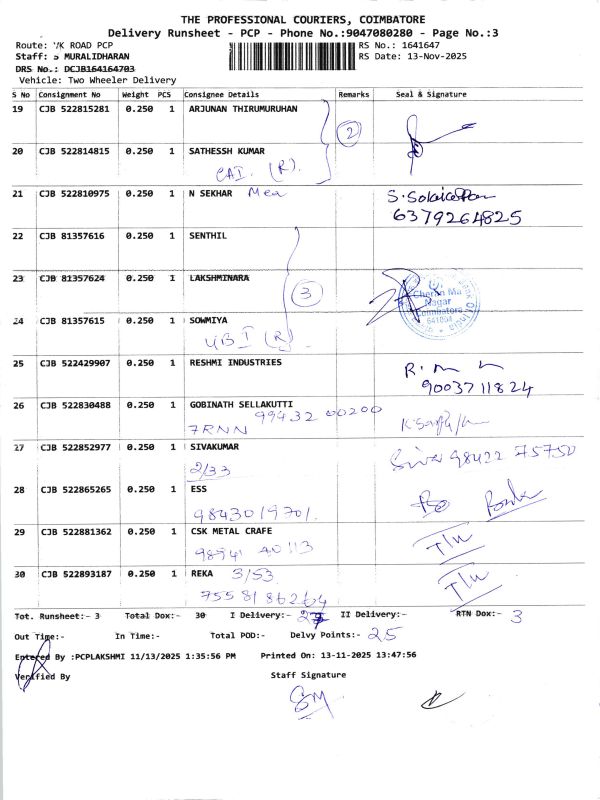 THE PROFESSIONAL COURIERS, COIMBATORE
Delivery Runsheet - PCP - Phone No.:9047080280 - Page No.:3
Route: VK ROAD PCP RS No.: 1641647
Staff: MURALIDHARAN RS Date: 13-Nov-2025
DRS No.: DCJB164164703
Vehicle: Two Wheeler Delivery
S No Consignment No Weight PCS Consignee Details Remarks Seal & Signature
19 CJB 522815281 0.250 1 ARJUNAN THIRUMURUHAN
2
20 CJB 522814815 0.250 1 SATHESSH KUMAR
(R).
21 CJB 522810975 0.250 1 N SEKHAR
6379264825
22 CJB 81357616 0.250 1 SENTHIL
23 CJB 81357624 0.250 1 LAKSHMINARA
3
Nagar
Coimbatore
24 CJB 81357615 0.250 1 SOWMIYA
UBI (R)
25 CJB 522429907 0.250 1 RESHMI INDUSTRIES
9003711824
26 CJB 522830488 0.250 1 GOBINATH SELLAKUTTI
99432 00200
7RNN
27 CJB 522852977 0.250 1 SIVAKUMAR
Siva 98422 75750
2/33
28 CJB 522865265 0.250 1 ESS
9843019701.
29 CJB 522881362 0.250 1 CSK METAL CRAFE
98941 40113
30 CJB 522893187 0.250 1 REKA 3/53
75581 86264
Tot. Runsheet:- 3 Total Dox:- 30 I Delivery:- 27 II Delivery:- RTN Dox:- 3
Out Time:- In Time:- Total POD:- Delvy Points:- 25
Entered By :PCPLAKSHMI 11/13/2025 1:35:56 PM Printed On: 13-11-2025 13:47:56
Verified By Staff Signature